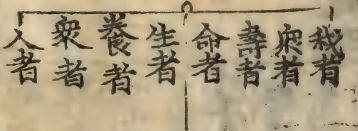 我者
衆者
壽者
命者
生者
養者
衆者
人者